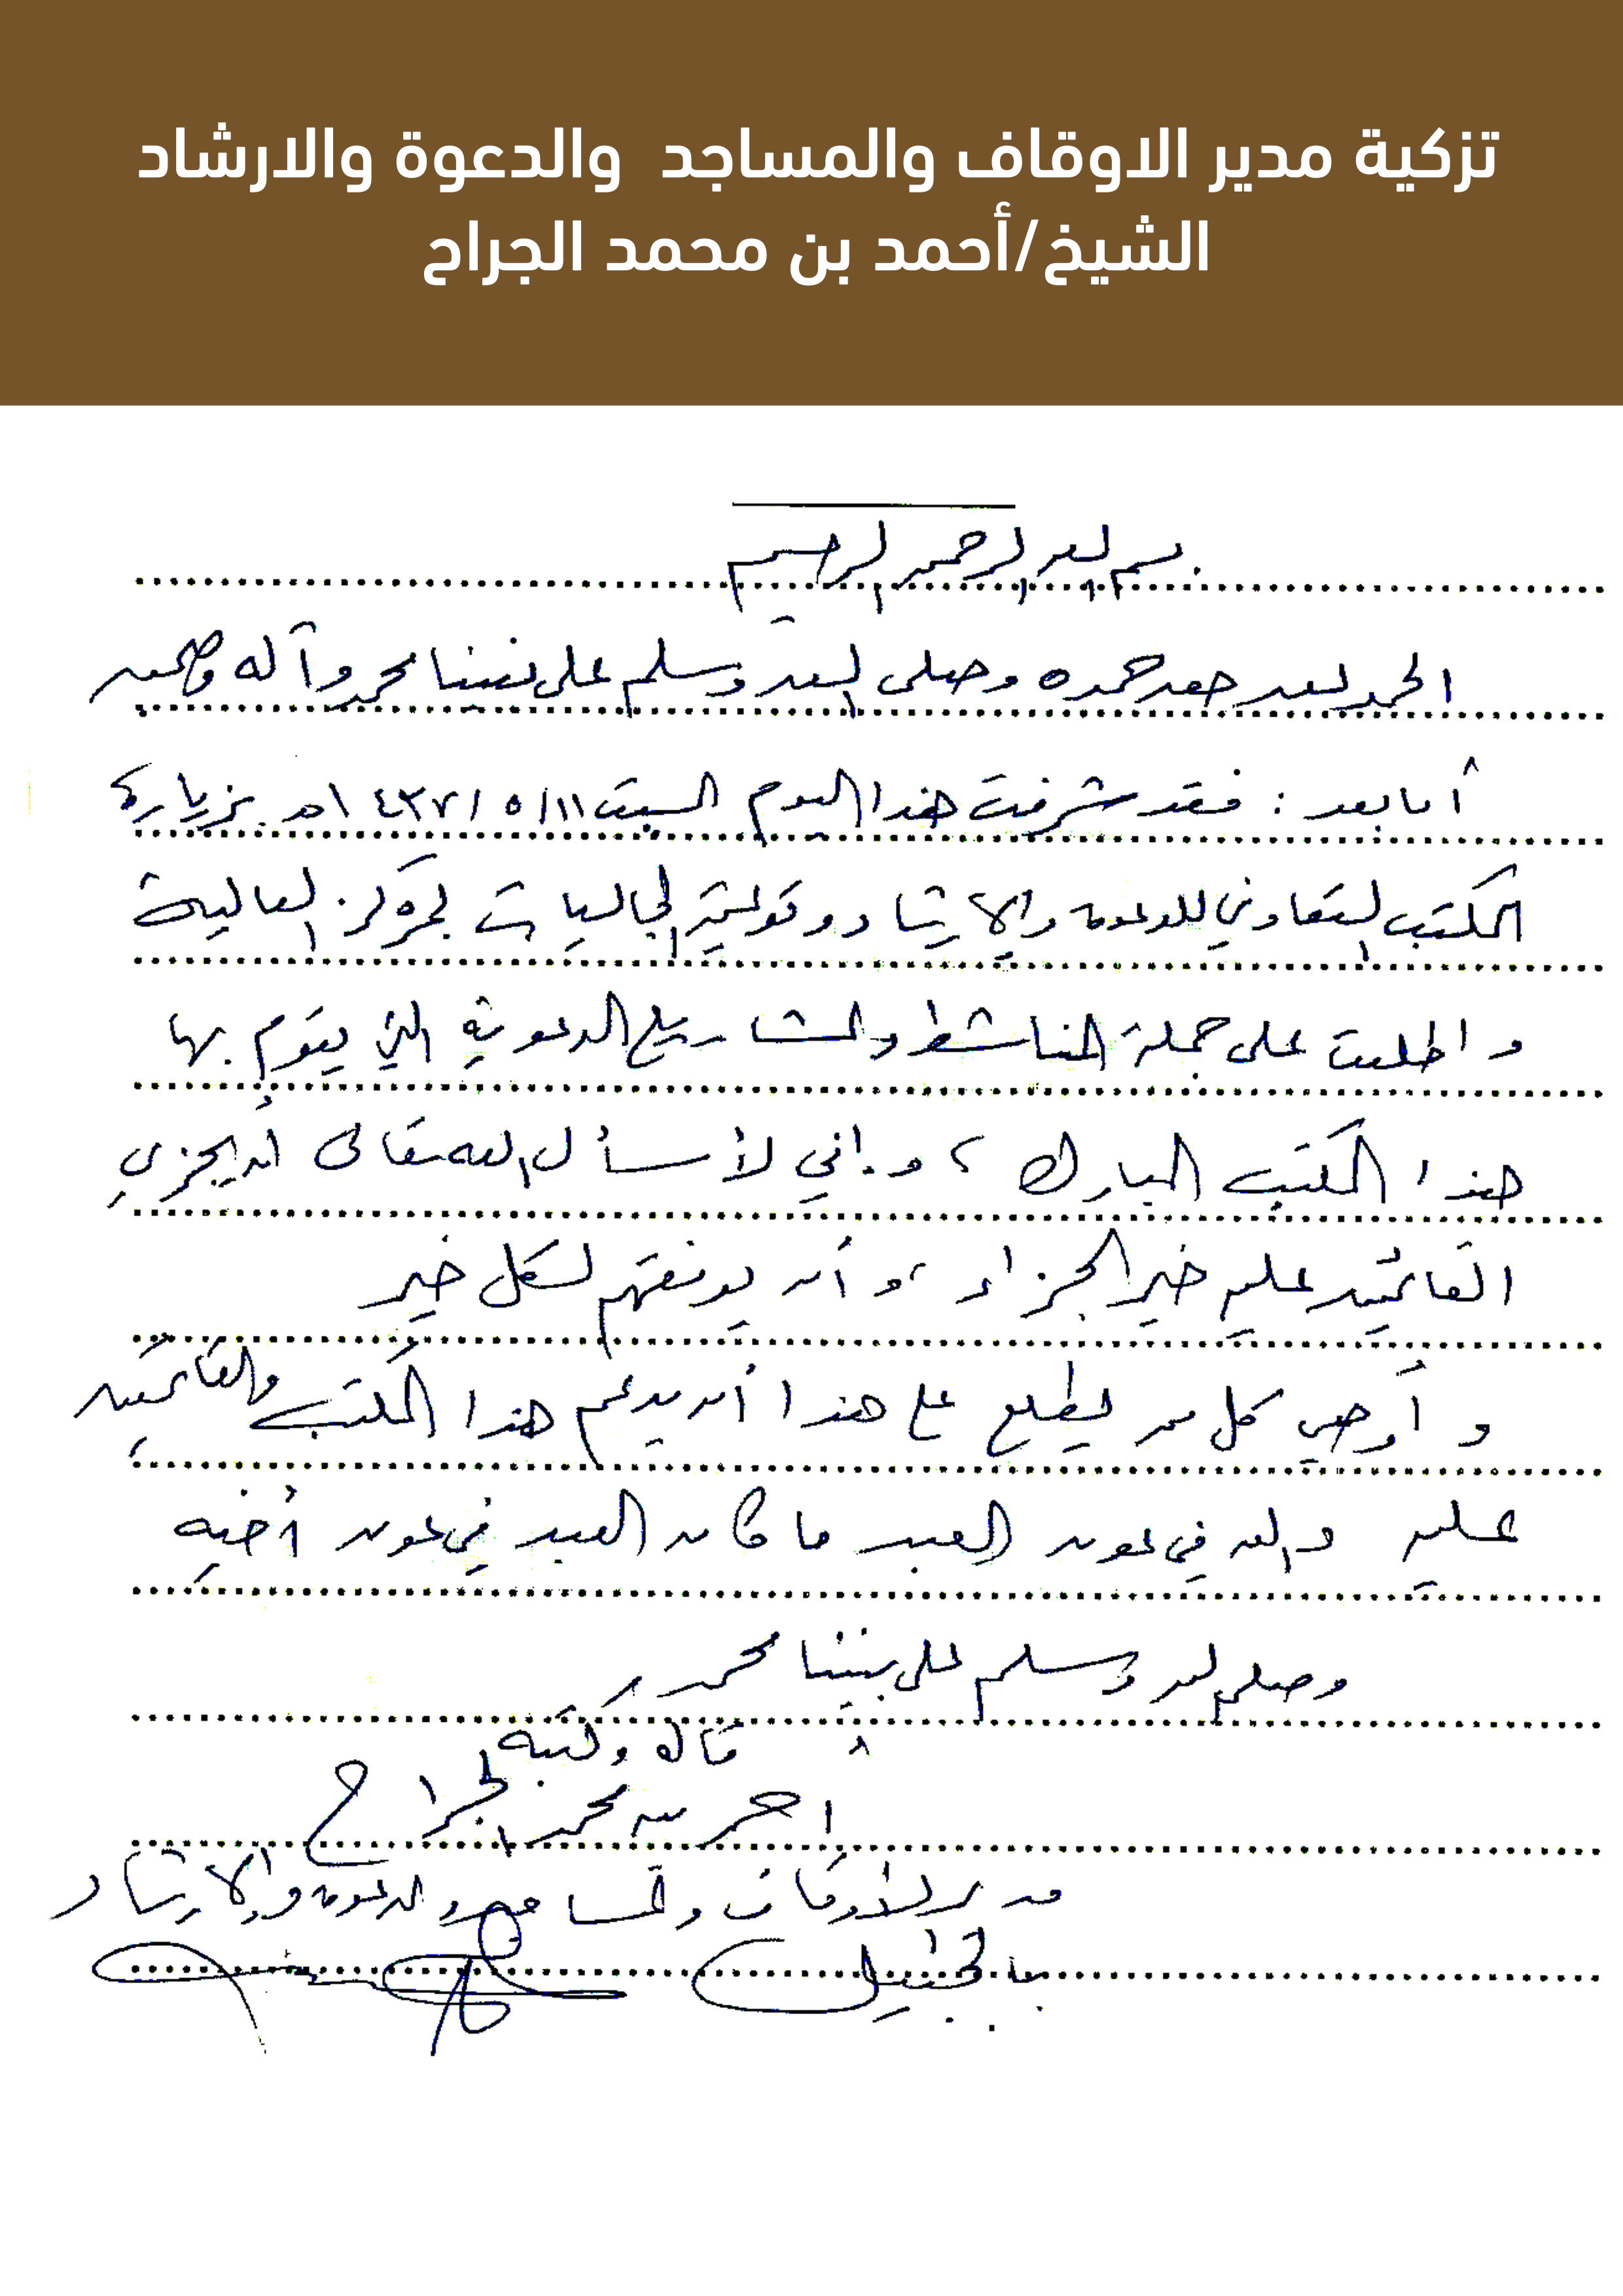 تزكية مدير الاوقاف والمساجد والدعوة والارشاد
الشيخ/أحمد بن محمد الجراح
بسم الله الرحمن الرحيم
الحمد لله حق حمده وصلى الله وسلم على نبينا محمد وآله وصحبه
أما بعد : فقد شرفت هذا اليوم السبت ١١/ ٥ /١٤٣٧هـ بزيارة
المكتب التعاوني للدعوة والإرشاد وتوعية الجاليات بمركز العالية
واطلعت على جملة المناشط والمشاريع الدعوية التي يقوم بها
هذا المكتب المبارك ، وإني لأسأل الله تعالى أن يجزي
القائمين عليه خير الجزاء ، وأن يوفقهم لكل خير
وأوصي كل من يطلع على هذا أن يدعم هذا المكتب والقائمين
عليه والله في عون العبد ما كان العبد في عون أخيه
وصلى الله وسلم على نبينا محمد ،
قاله وكتبه
أحمد بن محمد الجراح
مدير الأوقاف والمساجد والدعوة والإرشاد
بالجبيل